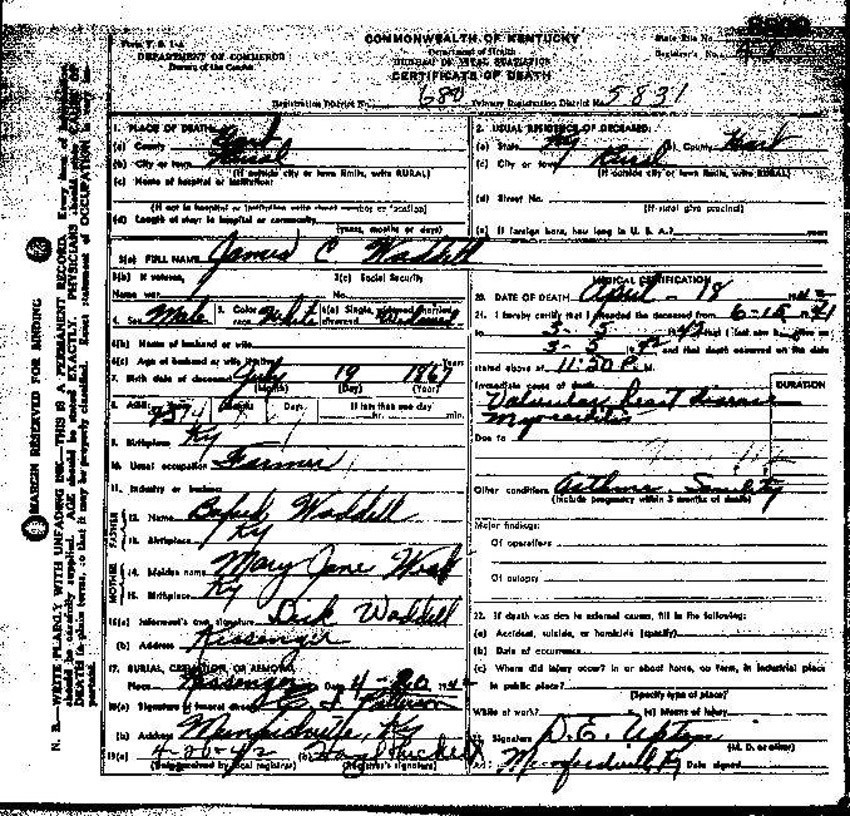 COMMONWEALTH OF KENTUCKY
Form V. S. 1-A
DEPARTMENT OF COMMERCE
Bureau of the Census
Department of Health
BUREAU OF VITAL STATISTICS
CERTIFICATE OF DEATH
State File No.
Registrar's No. 47
Registration District No. 680 Primary Registration District No. 5831
MARGIN RESERVED FOR BINDING
N. B.—WRITE PLAINLY WITH UNFADING INK—THIS IS A PERMANENT RECORD. Every item of
should be carefully supplied. AGE should be stated EXACTLY. PHYSICIANS should state CAUSE OF
DEATH in plain terms, so that it may be properly classified. Exact statement of OCCUPATION is very
portant.
1. PLACE OF DEATH:
(a) County Hart
(b) City or town Rural
(If outside city or town limits, write RURAL)
(c) Name of hospital or institution:
(If not in hospital or institution write street number or location)
(d) Length of stay: in hospital or community
(years, months or days)
2. USUAL RESIDENCE OF DECEASED:
(a) State Ky (b) County Hart
(c) City or town Rural
(If outside city or town limits, write RURAL)
(d) Street No.
(If rural give precinct)
(e) If foreign born, how long in U. S. A.? years
3(a) FULL NAME James C. Waddell
3(b) If veteran,
Name war
3(c) Social Security
No.
4. Sex Male 5. Color or race White 6(a) Single, widowed, married, divorced Widowed
6(b) Name of husband or wife
6(c) Age of husband or wife if alive Years
7. Birth date of deceased July 19 1867
(Month) (Day) (Year)
8. AGE: Years Months Days If less than one day
hr. min.
9. Birthplace Ky
10. Usual occupation Farmer
11. Industry or business
FATHER
12. Name Buford Waddell
13. Birthplace Ky
MOTHER
14. Maiden name Mary Jane
15. Birthplace Ky
16(a) Informant's own signature Dick Waddell
(b) Address Kessenger
17. BURIAL, CREMATION, OR REMOVAL
Place Kessenger Date 4-20 1942
18(a) Signature of funeral director
(b) Address Munfordville, Ky
19(a) 4-20-42 (b)
(Date received by local registrar) (Registrar's signature)
MEDICAL CERTIFICATION
20. DATE OF DEATH April - 18 1942
21. I hereby certify that I attended the deceased from 6-15 1941
to 3-5 1942 that I last saw h alive on
3-5 1942 and that death occurred on the date
stated above at 11:30 P. M.
Immediate cause of death DURATION
Valvular heart disease
Myocarditis
Due to
Other conditions Asthma Senility
(Include pregnancy within 3 months of death)
Major findings:
Of operations
Of autopsy
22. If death was due to external causes, fill in the following:
(a) Accident, suicide, or homicide (specify)
(b) Date of occurrence
(c) Where did injury occur? In or about home, on farm, in industrial place
in public place?
(Specify type of place)
While at work? (e) Means of injury
Signature D. E. Upton
(M. D. or other)
Munfordville Ky Date signed